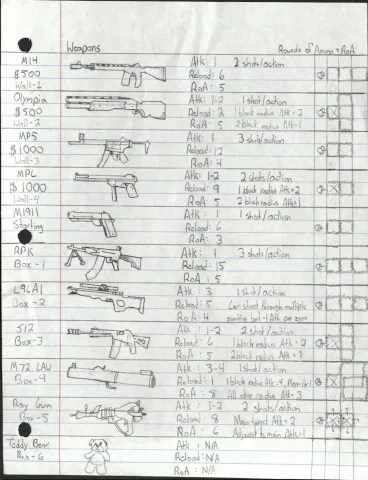 Weapons Rounds of Ammo = RoA
M14 Atk: 1 2 shots/action
$500 Reload: 6
Wall-1 RoA: 5
Olympia Atk: 1-2 1 shot/action
$500 Reload: 2 1 block radius Atk = 2
Wall-2 RoA: 5 2 block radius Atk=1
MP5 Atk: 1 3 shots/action
$1000 Reload: 12
Wall-3 RoA: 4
MPL Atk: 1-2 2 shots/action
$1000 Reload: 9 1 block radius Atk=2
Wall-4 RoA: 5 2 block radius Atk=1
M1911 Atk: 1 1 shot/action
Starting Reload: 6
RoA: 3
RPK Atk: 1 3 shots/action
Box-1 Reload: 15
RoA: 5
L96A1 Atk: 3 1 shot/action
Box-2 Reload: 5 Can shoot through multiple
RoA: 4 zombies but -1 Atk per zom
S12 Atk: 1-2 2 shot/action
Box-3 Reload: 6 1 block radius Atk = 2
RoA: 5 2 block radius Atk = 1
M72 LAW Atk: 3-4 1 shot/action
Box-4 Reload: 1 1 block radius Atk=4,
RoA: 8 All other radius Atk= 3
Ray Gun Atk: 1-2 2 shots/action
Box-5 Reload: 8 Main target Atk=2
RoA: 6 Adjacent to main Atk=1
Teddy Bear Atk: N/A
Box-6 Reload: N/A
RoA: N/A